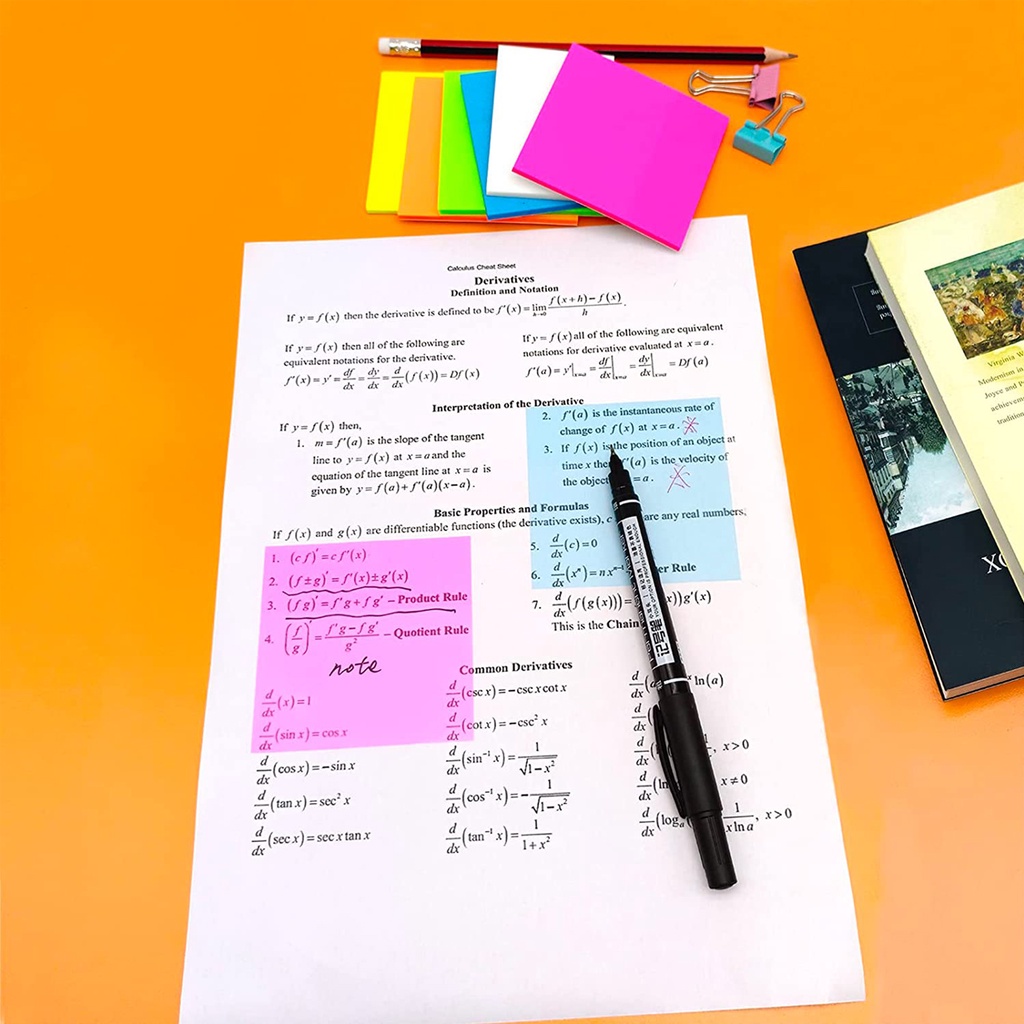 Calculus Cheat Sheet
Derivatives
Definition and Notation
If y = f(x) then the derivative is defined to be f′(x) = lim h→0 f(x+h) − f(x) / h .
If y = f(x) then all of the following are
equivalent notations for the derivative.
f′(x) = y′ = df/dx = dy/dx = d/dx (f(x)) = Df(x)
If y = f(x) all of the following are equivalent
notations for derivative evaluated at x = a .
f′(a) = y′|x=a = df/dx|x=a = dy/dx|x=a = Df(a)
Interpretation of the Derivative
If y = f(x) then,
1. m = f′(a) is the slope of the tangent
line to y = f(x) at x = a and the
equation of the tangent line at x = a is
given by y = f(a) + f′(a)(x − a) .
2. f′(a) is the instantaneous rate of
change of f(x) at x = a .
3. If f(x) is the position of an object at
time x f′(a) is the velocity of
the object = a .
Basic Properties and Formulas
If f(x) and g(x) are differentiable functions (the derivative exists), c are any real numbers,
1. (cf)′ = cf′(x)
2. (f ± g)′ = f′(x) ± g′(x)
3. (fg)′ = f′g + fg′ – Product Rule
4. (f/g)′ = f′g − fg′ / g² – Quotient Rule
note
5. d/dx (c) = 0
6. d/dx (xⁿ) = nxⁿ⁻¹ Rule
7. d/dx (f(g(x))) = g′(x)
This is the Chain
Common Derivatives
d/dx (x) = 1
d/dx (sin x) = cos x
d/dx (cos x) = −sin x
d/dx (tan x) = sec² x
d/dx (sec x) = sec x tan x
d/dx (csc x) = −csc x cot x
d/dx (cot x) = −csc² x
d/dx (sin⁻¹ x) = 1/√(1−x²)
d/dx (cos⁻¹ x) = −1/√(1−x²)
d/dx (tan⁻¹ x) = 1/(1+x²)
d/dx ( ln(a)
d/dx
d/dx ( , x > 0
d/dx (ln x ≠ 0
d/dx (logₐ 1/(x ln a), x > 0
记号笔
Virginia W
Modernism in
Joyce and P
achievem
tradition
OX